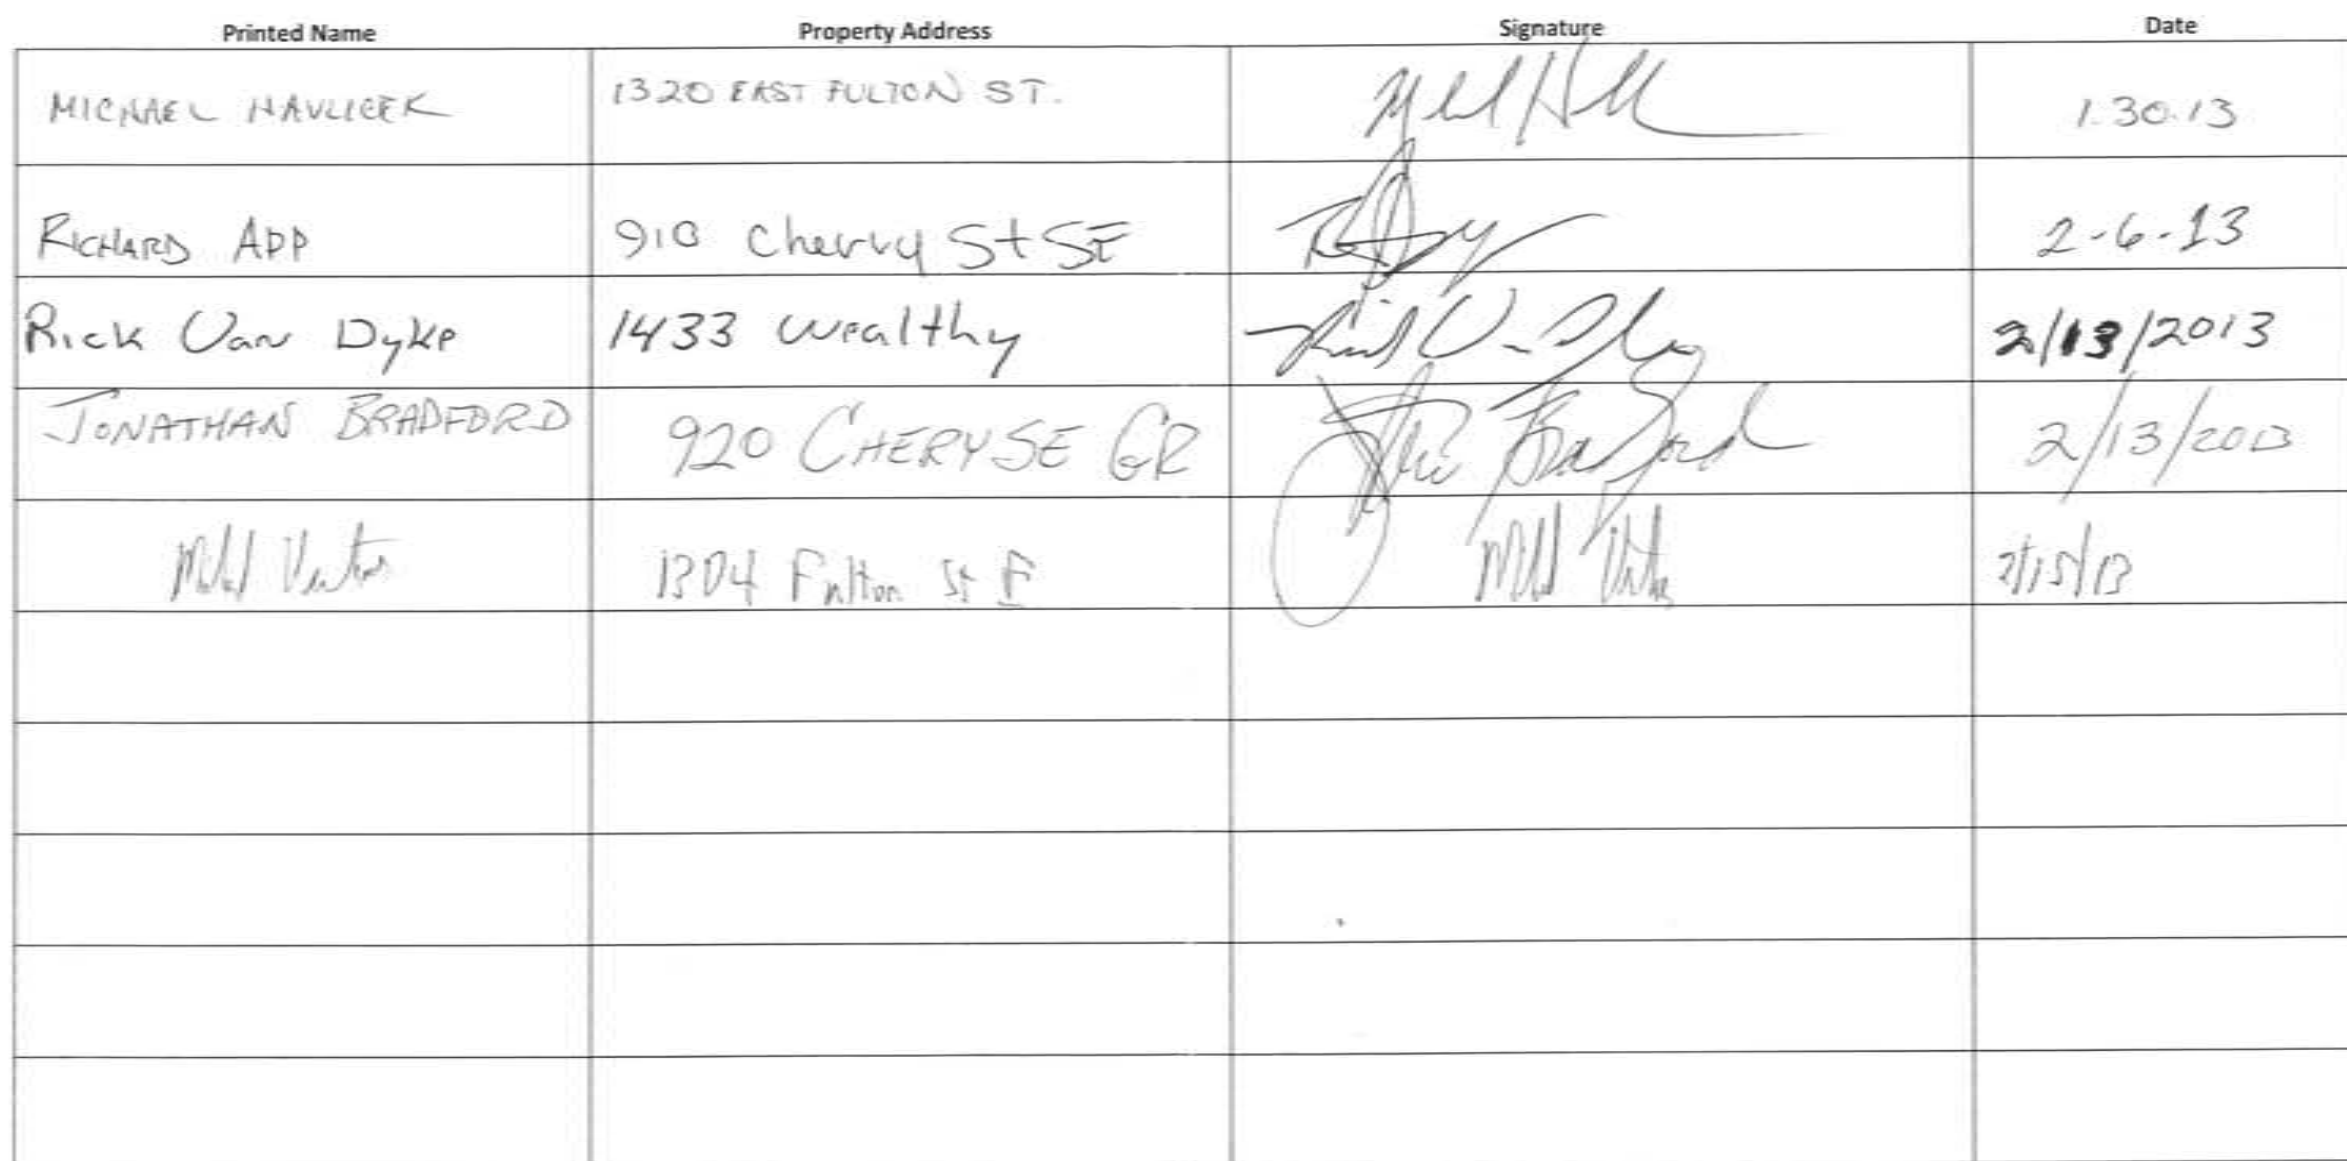 Printed Name Property Address Signature Date
MICHAEL HAVLICEK 1320 EAST FULTON ST. 1.30.13
RICHARD APP 910 Cherry St SE 2-6-13
Rick Van Dyke 1433 Wealthy 2/13/2013
JONATHAN BRADFORD 920 CHERY SE GR 2/13/2013
1304 Fulton St E 2/15/13